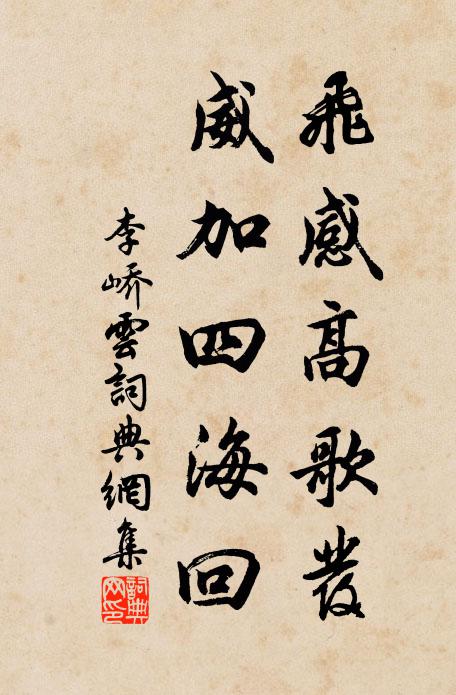 飛感高歌發
威加四海回
李嶠雲詞典網集
詞典
网印